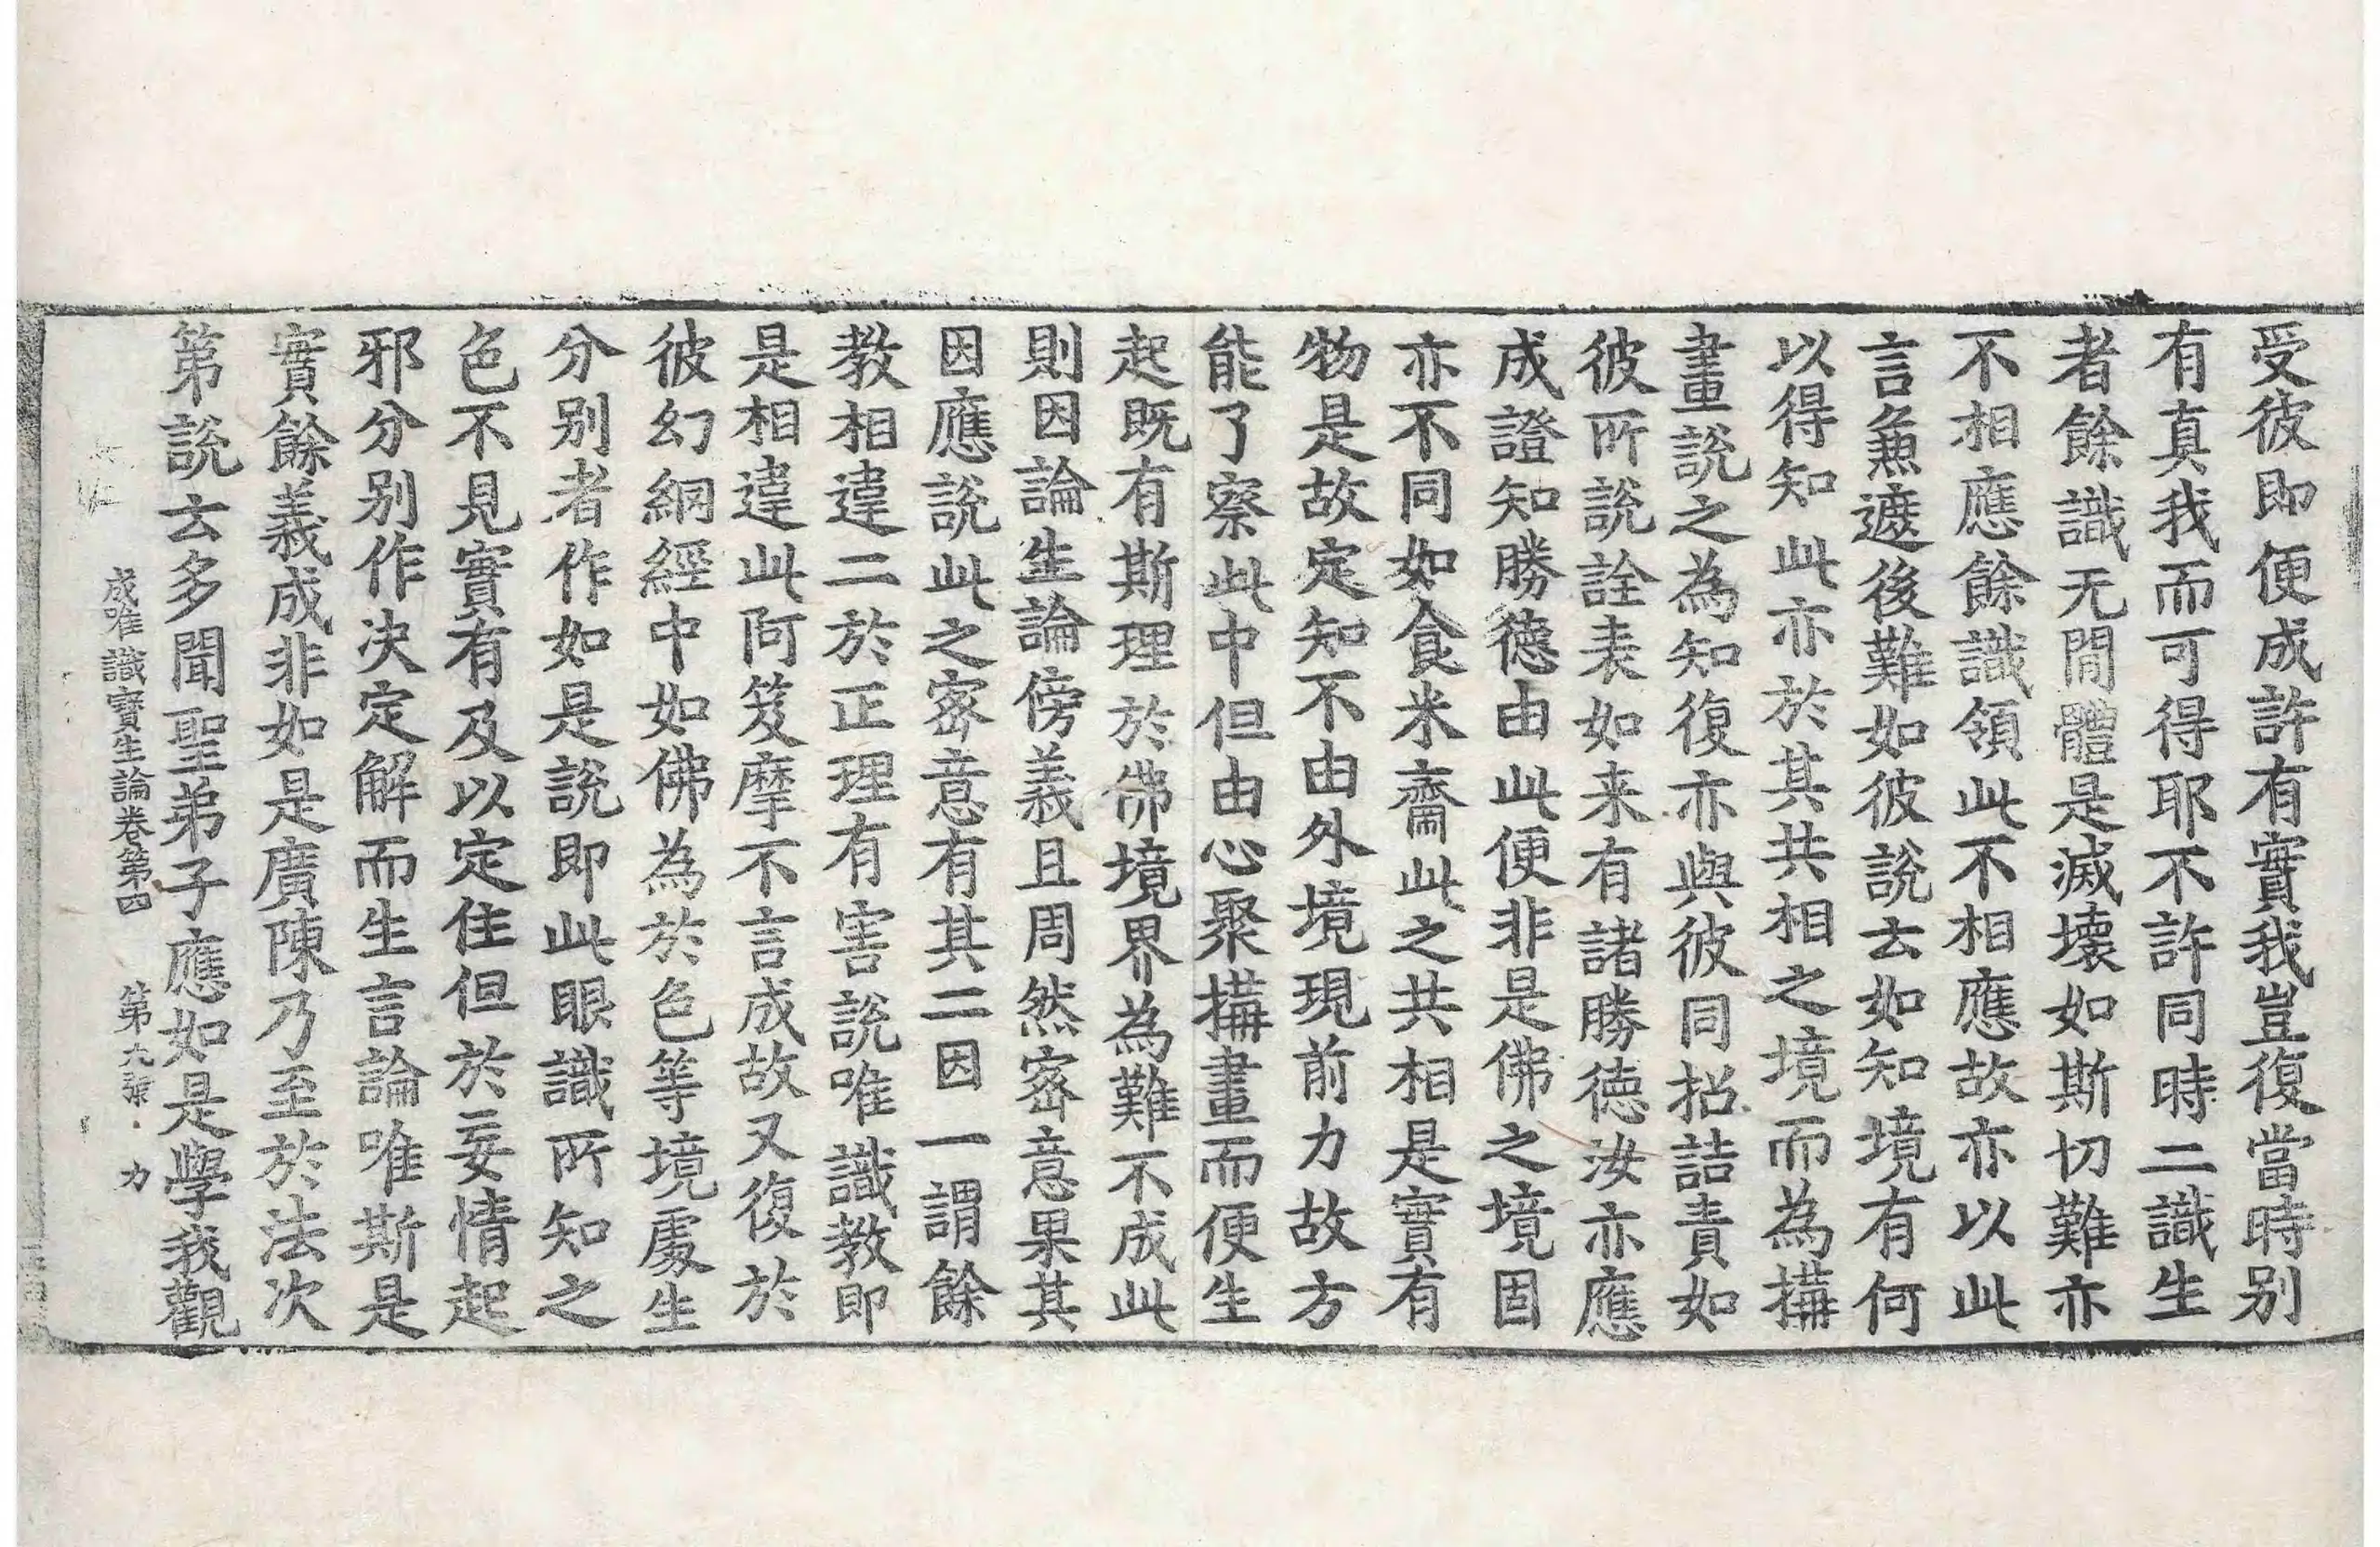 受彼即便成許有實我豈復當時别
有真我而可得耶不許同時二識生
者餘識无閒體是滅壞如斯切難亦
不相應餘識領此不相應故亦以此
言兼遮後難如彼說去如知境有何
以得知此亦於其共相之境而為搆
畫說之為知復亦與彼同招詰責如
彼所說詮表如来有諸勝德汝亦應
成證知勝德由此便非是佛之境固
亦不同如食米齋此之共相是實有
物是故定知不由外境現前力故方
能了察此中但由心聚搆畫而便生
起既有斯理於佛境界為難不成此
則因論生論傍義且周然密意果其
因應說此之密意有其二因一謂餘
教相違二於正理有害說唯識教即
是相違此阿笈摩不言成故又復於
彼幻網經中如佛為於色等境處生
分别者作如是說即此眼識所知之
色不見實有及以定住但於妄情起
邪分别作决定解而生言論唯斯是
實餘義成非如是廣陳乃至於法次
第說去多聞聖弟子應如是學我觀
成唯識寶生論卷第四 第九張 力